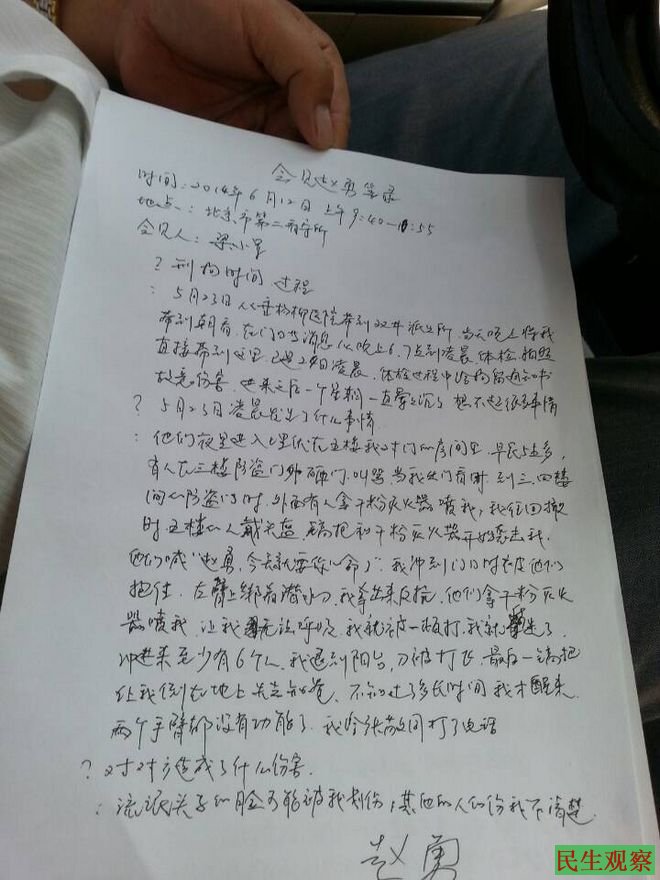 会见赵勇笔录
时间:2014年6月12日 上午9:40-10:55
地点:北京市第二看守所
会见人:梁小军
? 刑拘时间 过程
: 5月23日从垂杨柳医院带到双井派出所,当天晚上将我
带到朝看,在门口等消息从晚上6、7点到凌晨,体检、拍照
直接带到这里已是24日凌晨,体检过程中给拘留通知书
故意伤害,进来之后一个星期一直晕沉沉 想不起很多事情
? 5月23日凌晨发生了什么事情
: 他们夜里进入埋伏在五楼我对门的房间里,早晨5点多,
有人在三楼防盗门外砸门、叫骂,当我出门看时 到三、四楼
间的防盗门时,外面有人拿干粉灭火器喷我,我往回撤
时五楼的人戴头盔、镐把和干粉灭火器开始袭击我,
他们喊"赵勇,今天就要你的命了",我冲到门口时在皮他们
抱住,左臂上绑着潜水刀,我拿出来反抗,他们拿干粉灭火
器喷我,让我无法呼吸,我就被一顿打,我就
冲进来至少有6个人,我退到阳台,刀被打飞,最后一镐把
让我倒在地上失去知觉,不知过了多长时间我才醒来,
两个手臂都没有功能了,我给张 同打了电话
? 对对方造成了什么伤害.
: 流氓头子的脸可能被我划伤,其他的人的伤我不清楚
赵勇
民生观察